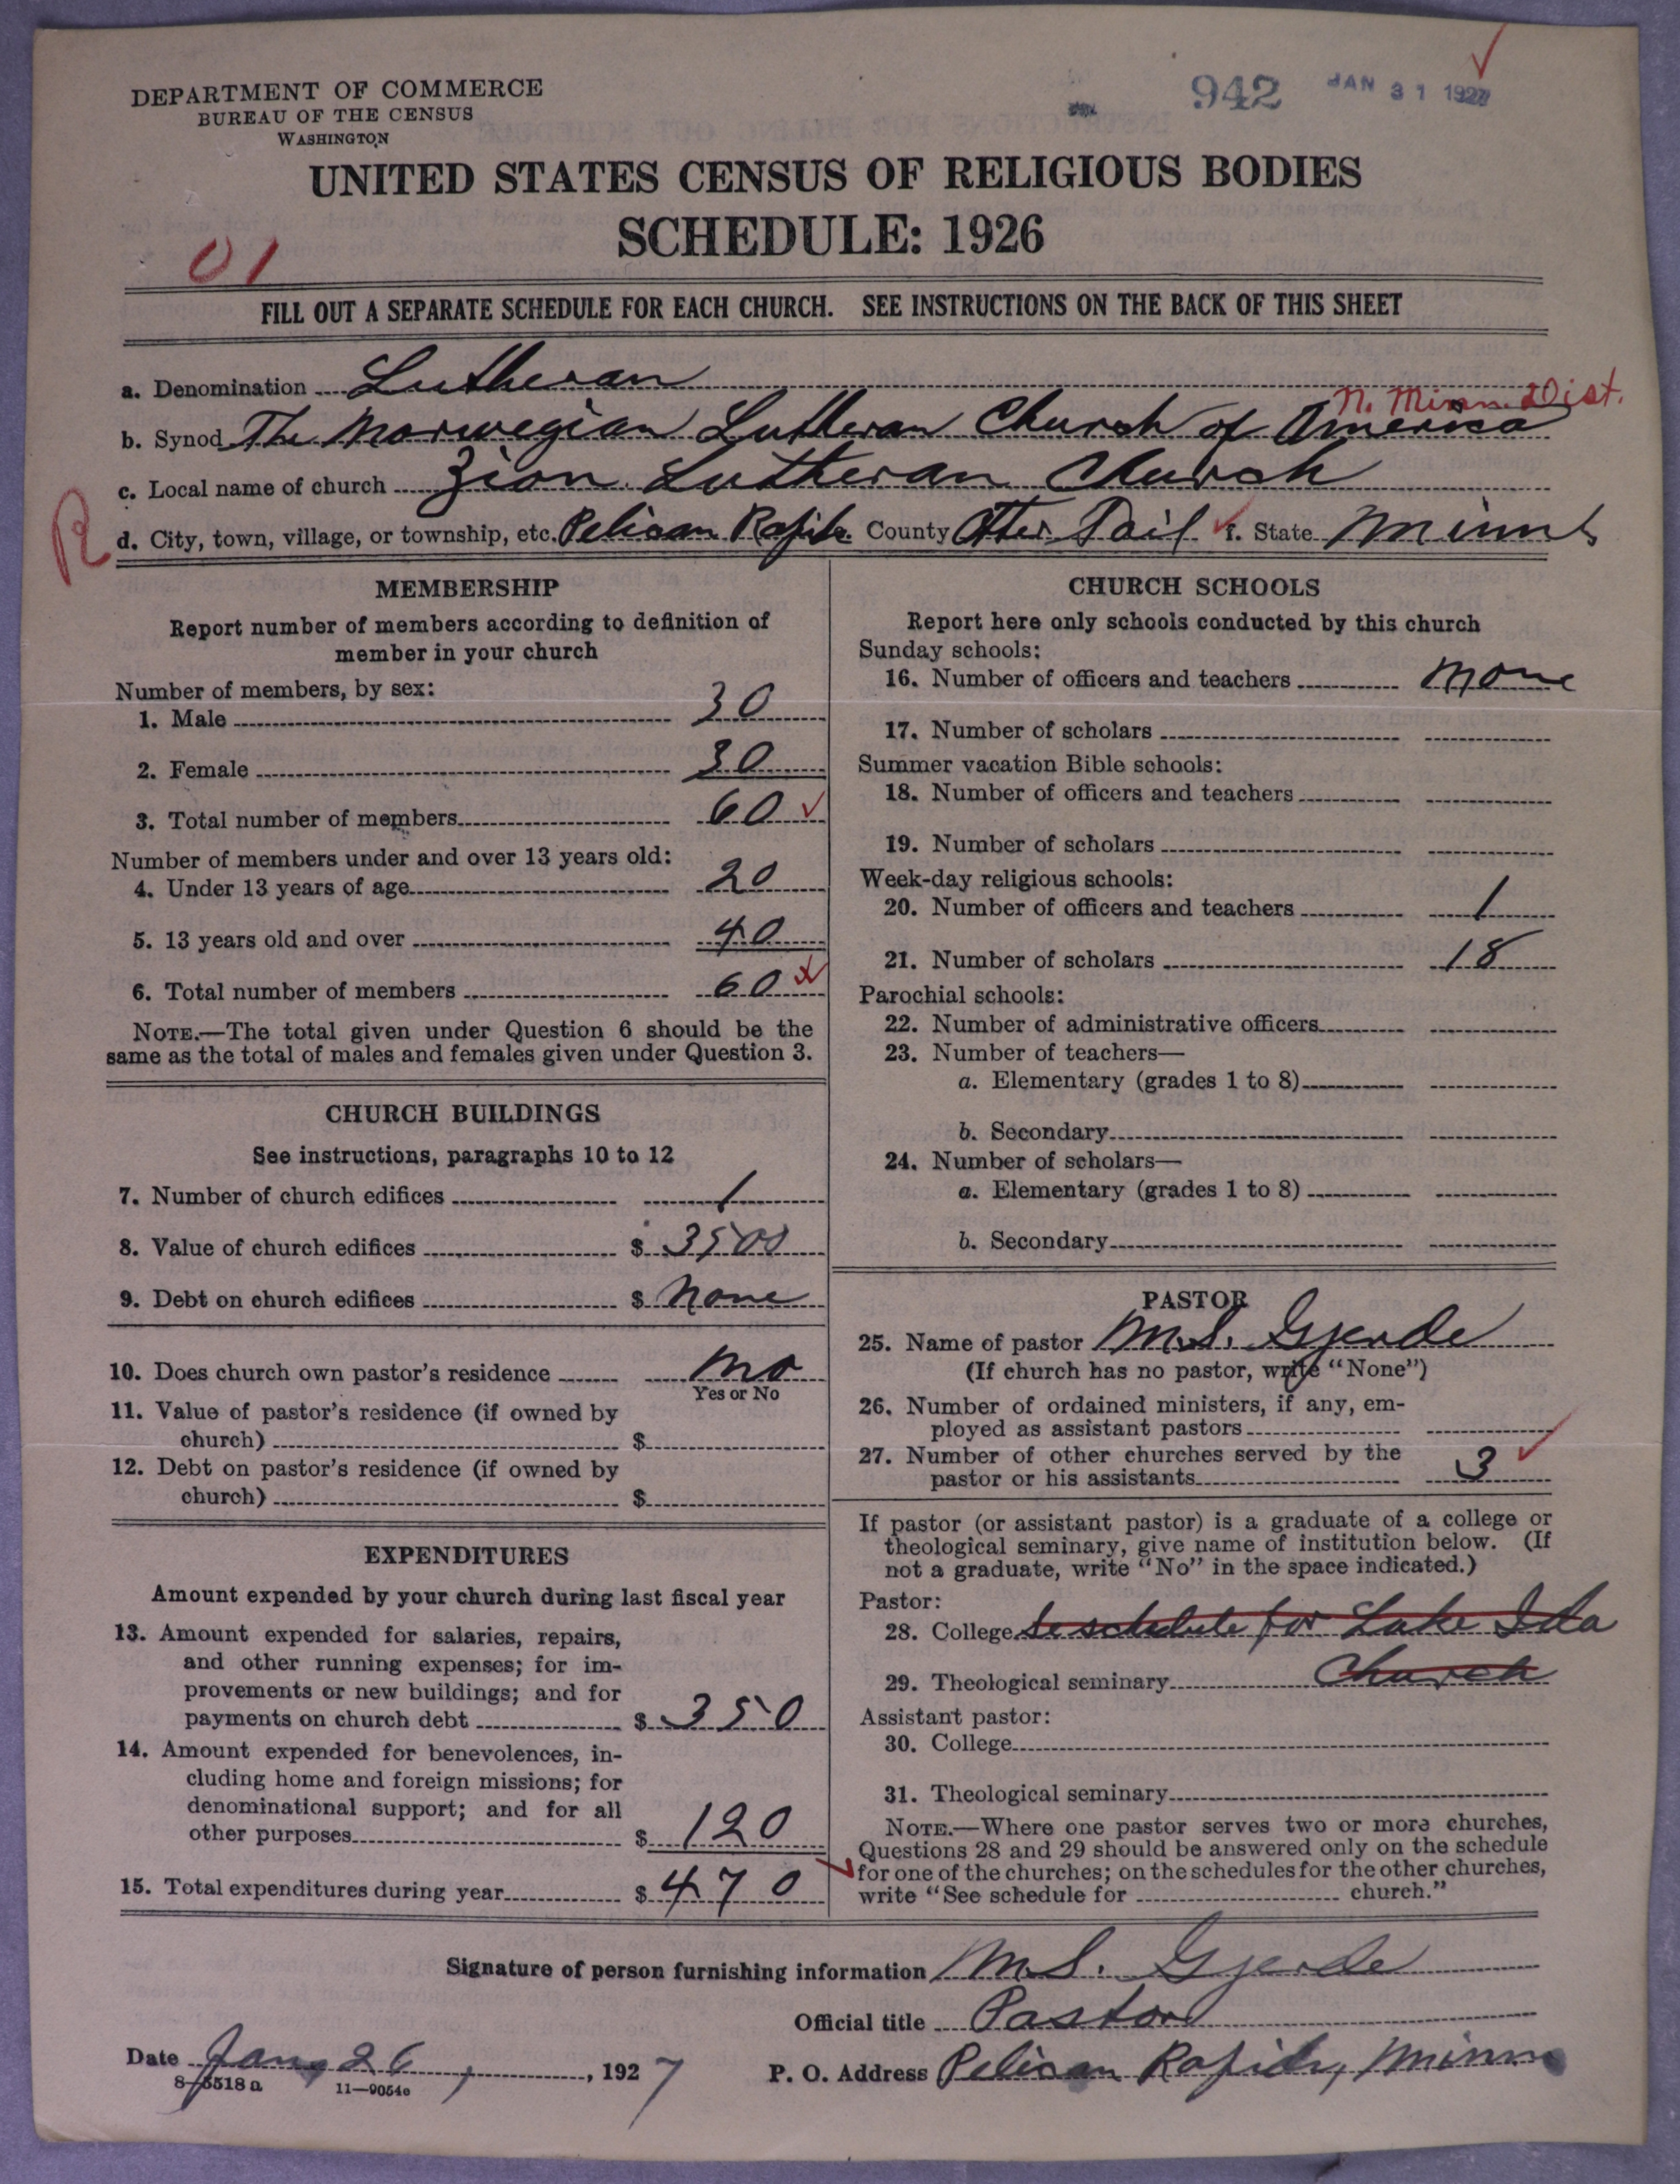 942 JAN 31 1927
DEPARTMENT OF COMMERCE
BUREAU OF THE CENSUS
WASHINGTON
UNITED STATES CENSUS OF RELIGIOUS BODIES
SCHEDULE: 1926
01
FILL OUT A SEPARATE SCHEDULE FOR EACH CHURCH. SEE INSTRUCTIONS ON THE BACK OF THIS SHEET
a. Denomination Lutheran
N. Minn. Dist.
b. Synod The Norwegian Lutheran Church of America
c. Local name of church Zion Lutheran Church
R
d. City, town, village, or township, etc. Pelican Rapids County Otter Tail f. State Minn
MEMBERSHIP
Report number of members according to definition of
member in your church
Number of members, by sex:
1. Male 30
2. Female 30
3. Total number of members 60
Number of members under and over 13 years old:
4. Under 13 years of age 20
5. 13 years old and over 40
6. Total number of members 60
NOTE.—The total given under Question 6 should be the
same as the total of males and females given under Question 3.
CHURCH BUILDINGS
See instructions, paragraphs 10 to 12
7. Number of church edifices 1
8. Value of church edifices $ 3500
9. Debt on church edifices $ None
10. Does church own pastor's residence No
Yes or No
11. Value of pastor's residence (if owned by
church) $
12. Debt on pastor's residence (if owned by
church) $
EXPENDITURES
Amount expended by your church during last fiscal year
13. Amount expended for salaries, repairs,
and other running expenses; for im-
provements or new buildings; and for
payments on church debt $ 350
14. Amount expended for benevolences, in-
cluding home and foreign missions; for
denominational support; and for all
other purposes $ 120
15. Total expenditures during year $ 470
CHURCH SCHOOLS
Report here only schools conducted by this church
Sunday schools:
16. Number of officers and teachers None
17. Number of scholars
Summer vacation Bible schools:
18. Number of officers and teachers
19. Number of scholars
Week-day religious schools:
20. Number of officers and teachers 1
21. Number of scholars 18
Parochial schools:
22. Number of administrative officers
23. Number of teachers—
a. Elementary (grades 1 to 8)
b. Secondary
24. Number of scholars—
a. Elementary (grades 1 to 8)
b. Secondary
PASTOR
25. Name of pastor M.S. Gjerde
(If church has no pastor, write "None")
26. Number of ordained ministers, if any, em-
ployed as assistant pastors
27. Number of other churches served by the
pastor or his assistants 3
If pastor (or assistant pastor) is a graduate of a college or
theological seminary, give name of institution below. (If
not a graduate, write "No" in the space indicated.)
Pastor:
28. College Se schedule for Lake Ida
29. Theological seminary Church
Assistant pastor:
30. College
31. Theological seminary
NOTE.—Where one pastor serves two or more churches,
Questions 28 and 29 should be answered only on the schedule
for one of the churches; on the schedules for the other churches,
write "See schedule for church."
Signature of person furnishing information M.S. Gjerde
Official title Pastor
Date Jan, 26, 1927 P. O. Address Pelican Rapids, Minn
8—5518 a 11—9054e